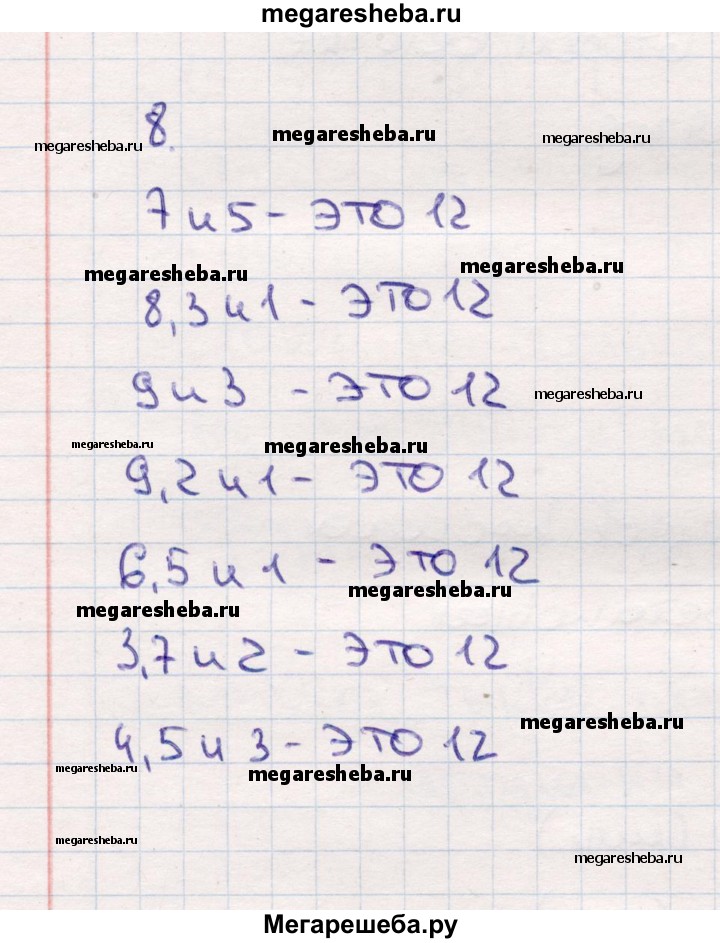 megaresheba.ru
8.
megaresheba.ru megaresheba.ru megaresheba.ru
7 и 5 - это 12
megaresheba.ru megaresheba.ru
8,3 и 1 - это 12
9 и 3 - это 12 megaresheba.ru
megaresheba.ru megaresheba.ru
9,2 и 1 - это 12
6,5 и 1 - это 12
megaresheba.ru
megaresheba.ru
3,7 и 2 - это 12
megaresheba.ru
4,5 и 3 - это 12
megaresheba.ru megaresheba.ru
megaresheba.ru
megaresheba.ru
Мегарешеба.ру